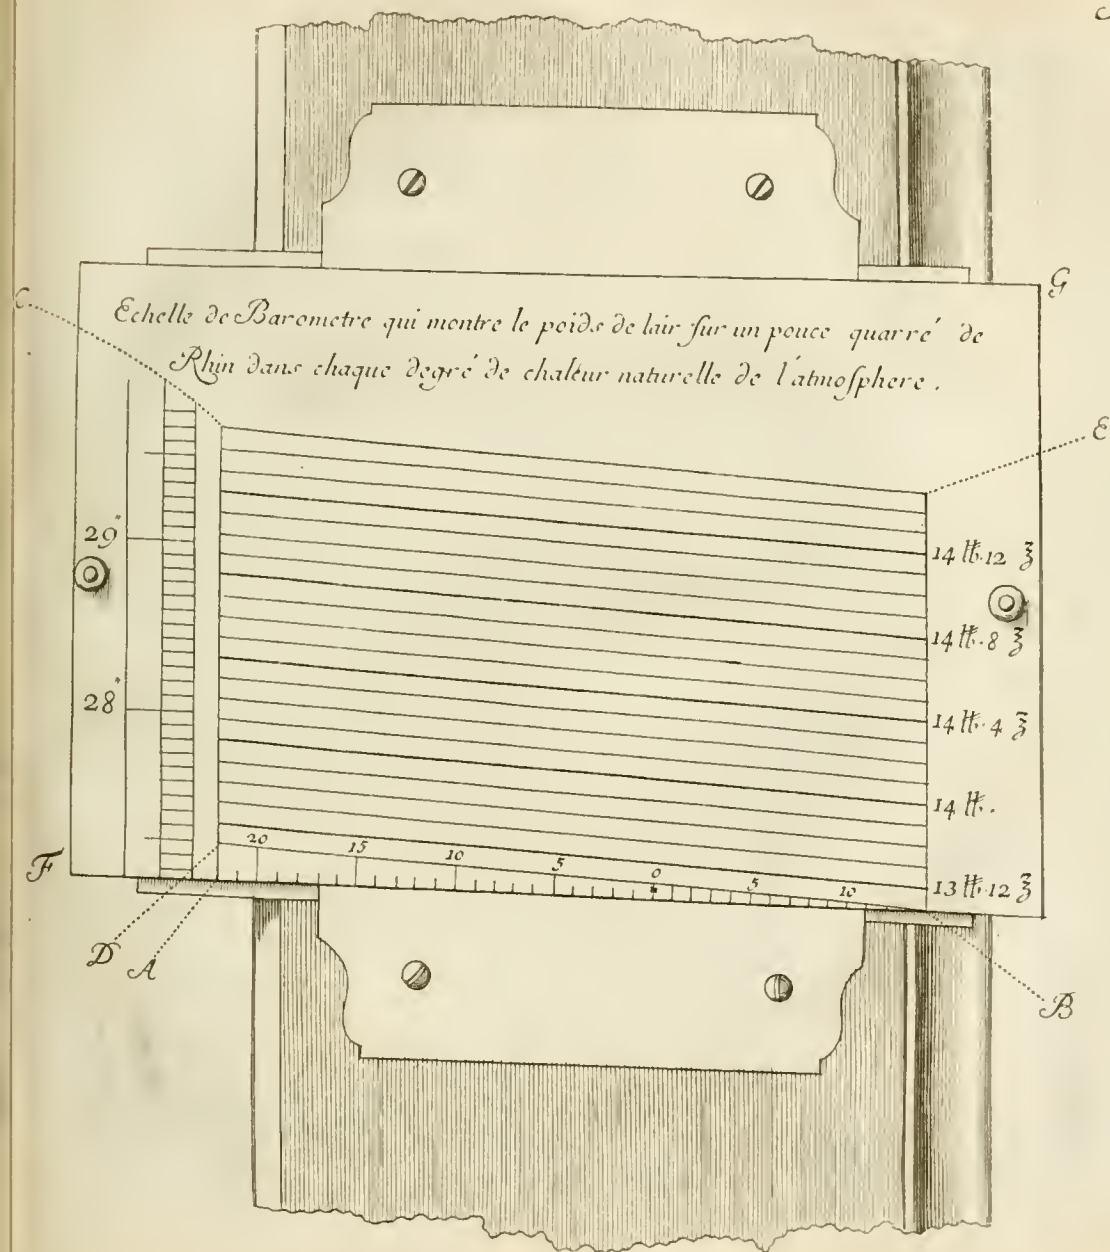 G
C
Echelle de Barometre qui montre le poids de lair sur un pouce quarré de
Rhin dans chaque degré de chaleur naturelle de l'átmosphere.
E
29"
14 ℔. 12 ℥
14 ℔. 8 ℥
28"
14 ℔. 4 ℥
14 ℔.
20 15 10 5 0 5 10
F
13 ℔. 12 ℥
D A
B